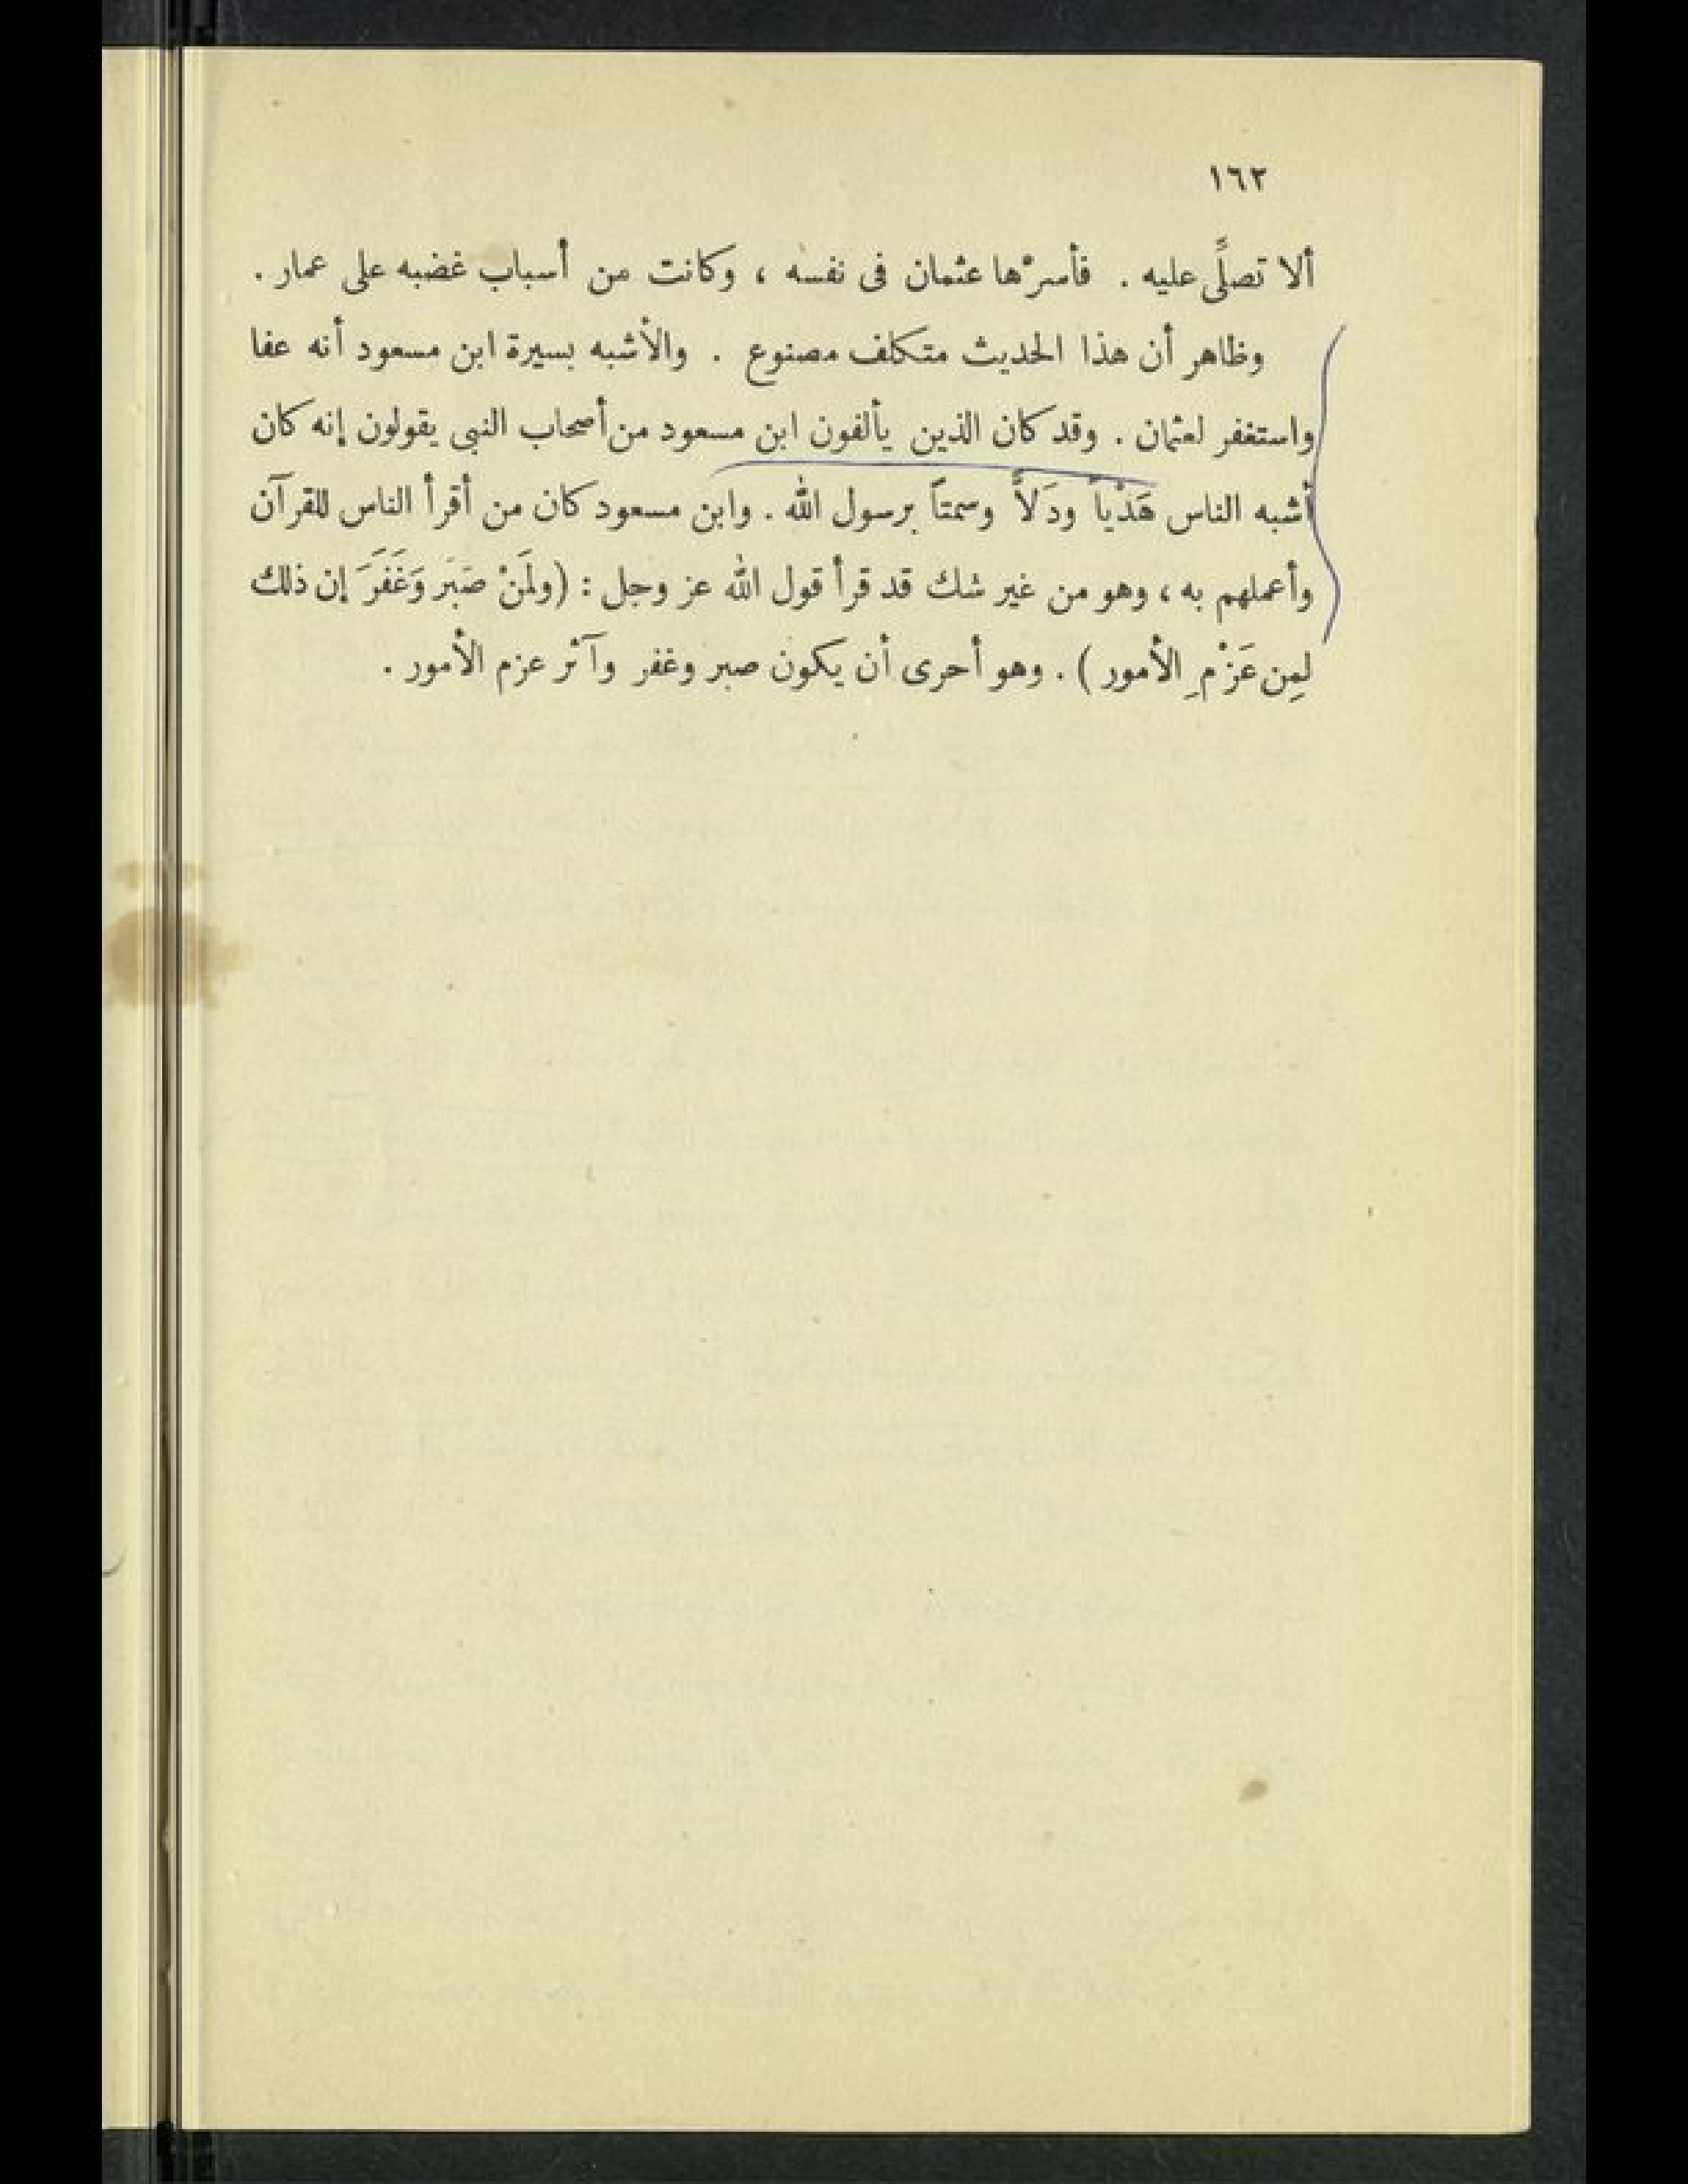 ١٦٢
ألا تصلِّى عليه . فأسرّها عثمان فى نفسه ، وكانت من أسباب غضبه على عمار .
وظاهر أن هذا الحديث متكلف مصنوع . والأشبه بسيرة ابن مسعود أنه عفا
واستغفر لعثمان . وقد كان الذين يألفون ابن مسعود من أصحاب النبى يقولون إنه كان
أشبه الناس هَدْياً ودَلاًّ وسمتاً برسول الله . وابن مسعود كان من أقرأ الناس للقرآن
وأعملهم به ، وهو من غير شك قد قرأ قول الله عز وجل : (ولَمَنْ صَبَر وَغَفَرَ إن ذلك
لمِن عَزْمِ الأمور ) . وهو أحرى أن يكون صبر وغفر وآثر عزم الأمور .